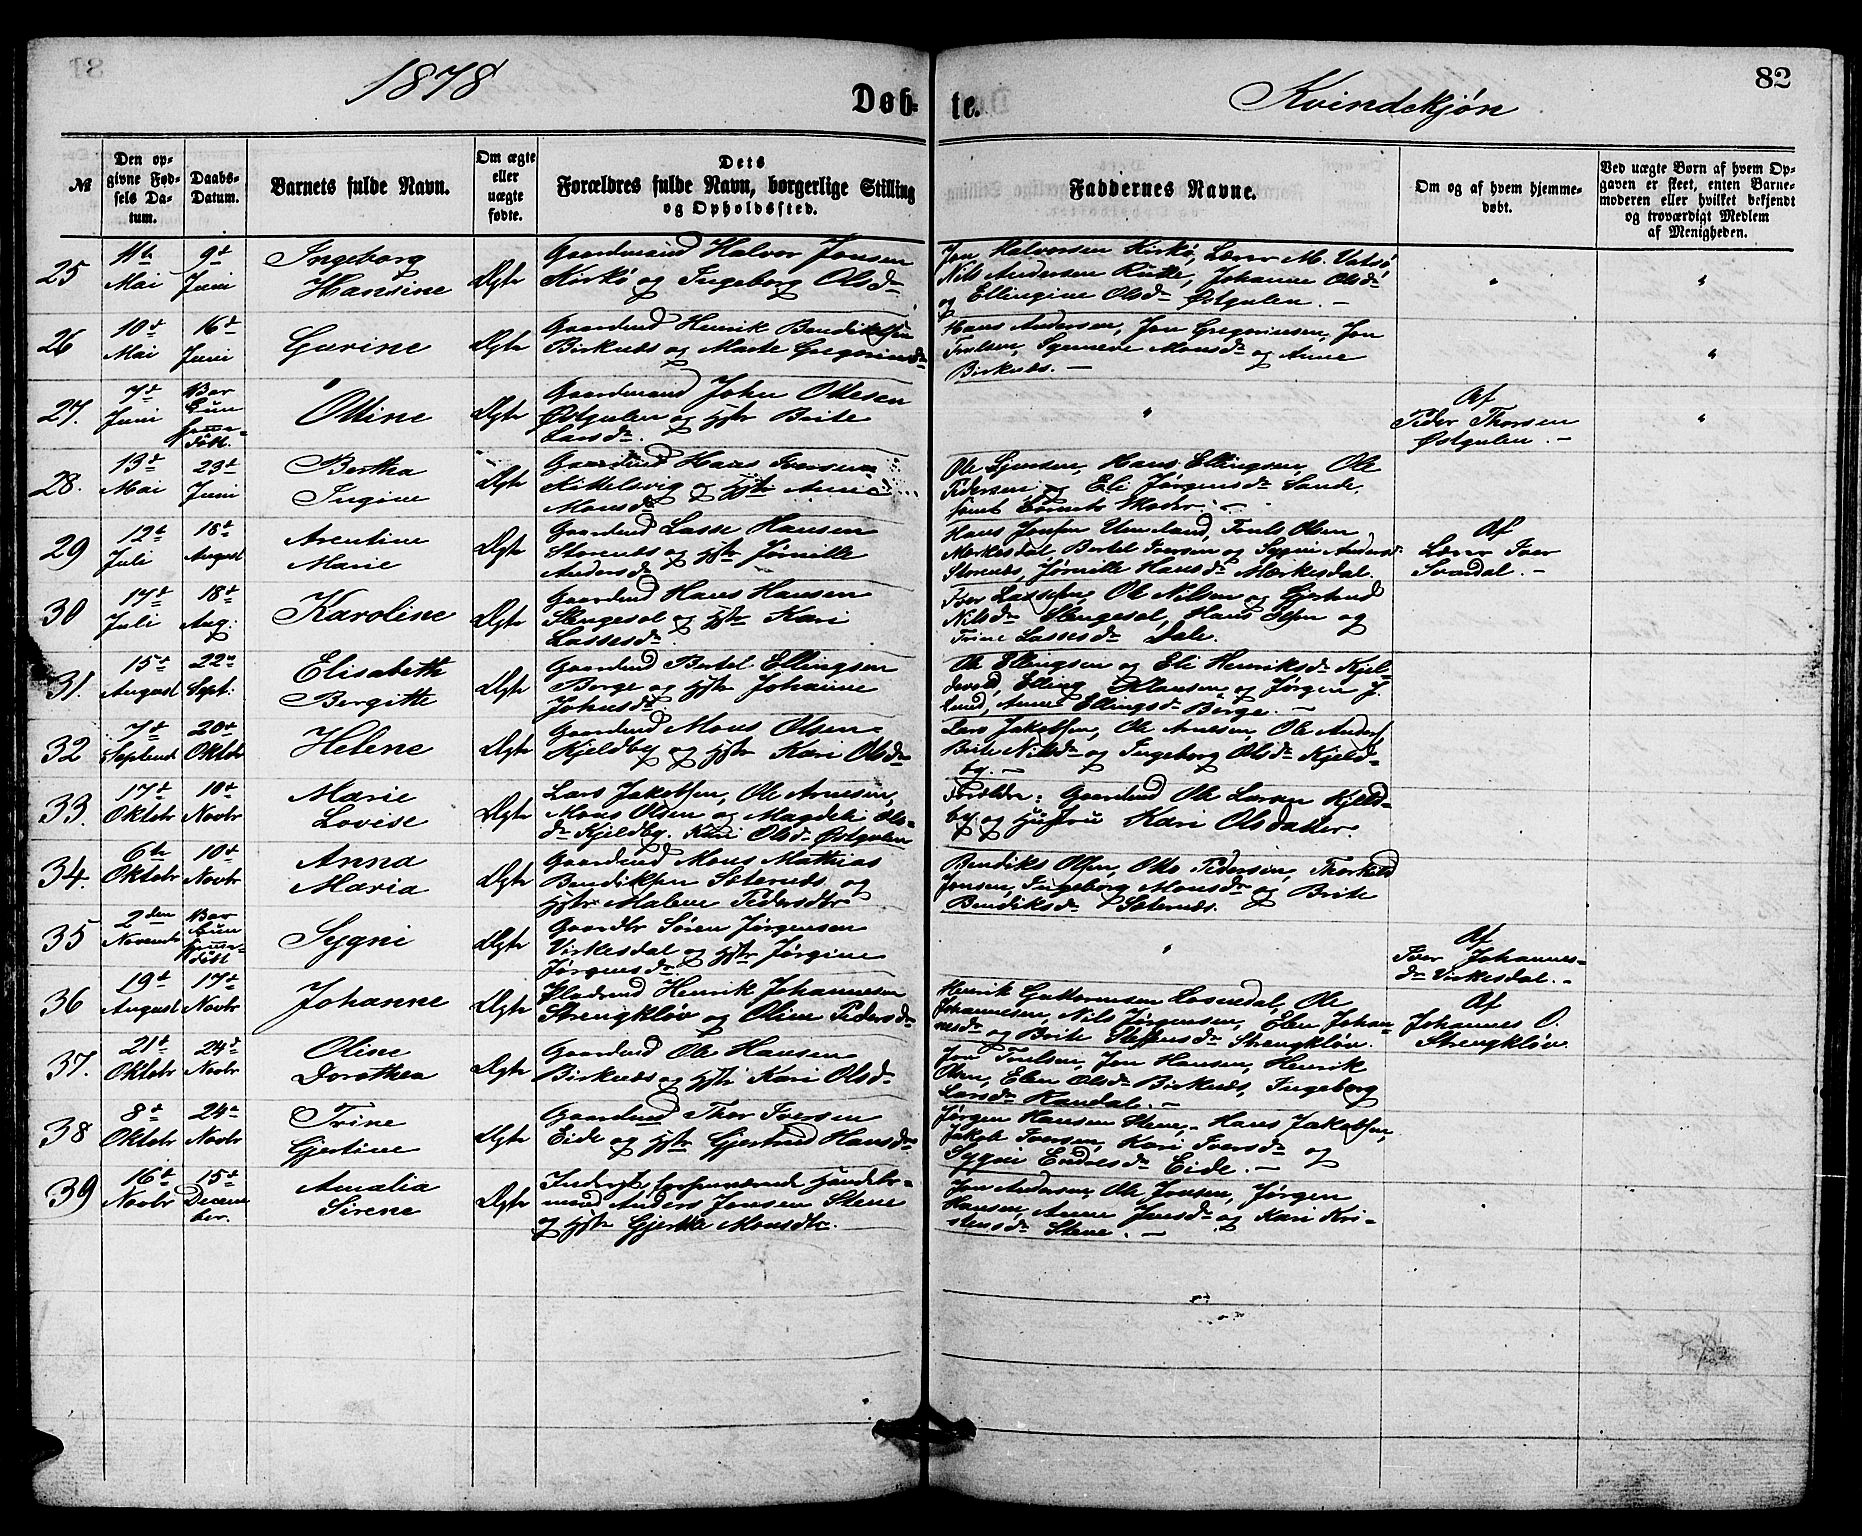 1878
Døb-
te.
Kvindekjøn
82
№
Den op-
givne Fød-
sels Da-
tum.
Daabs-
Datum.
Barnets fulde Navn.
Om ægte
eller
uægte
fødte.
Dets
Forældres fulde Navn, borgerlige Stilling
og Opholdssted.
Faddernes Navne.
Om og af hvem hjemme-
døbt.
Ved uægte Børn af hvem Op-
gaven er skeet, enten Barne-
moderen eller hvilket bekjendt
og troværdigt Medlem
af Menigheden.
25
11te
Mai
9d
Juni
Ingeborg
Hansine
Ægte
Gaardmand Halvor Jonsen
Kirkø og Ingeborg Olsdr
Jon Halvorsen Kirkø, Lærer M. Vatsø
Nils Andersen Rutle, Johanne Olsdr
og Ellingine Olsdr Østgulen. —
26
10d
Mai
16d
Juni
Gurine
Ægte
Gaardmd Henrik Bendiksen
Birknæs og Marte Gregoriusdr
Hans Andersen, Jon Gregoriusen, Jon
Troelsen, Synneve Monsdr og Anne
Birknæs. —
27.
7d
Juni
Bar
kun
hjemme-
døbt.
Oline
Ægte
Gaardmand John Ottesen
Østgulen og Hstr Brite
Larsdr.
Af
Peder Thorsen
Østgulen. —
28.
13d
Mai
23d
Juni
Bertha
Ingine
Ægte
Gaardmd Hans Iversen
Kikelsvig og Hstr Anne
Monsdr
Ole Sjursen, Hans Ellingsen, Ole
Pedersen og Eli Jørgensdr Sande,
samt Barnets Moder. —
29
12d
Juli
18d
August
Arentine
Marie
Ægte
Gaardmd Lasse Hansen
Storenæs og Hstr Jørnille
Andersdr
Hans Jonsen Umeland, Troels Olsen
Mærkesdal, Bertel Iversen og Sygni Andersdr
Storenæs, Jørnille Hansdr Mærkesdal.
Af
Lærer Iver
Svardal. —
30
17d
Juli
18d
Aug:
Karoline
Ægte
Gaardmd Hans Hansen
Slengesol og Hstr Kari
Lassesdr
Iver Lassesen, Ole Nilsen og Gjertrud
Nilsdr Slengesol, Hans Olsen og
Trine Lassesdr Dale.
31.
15d
August
22n
Sept:
Elisabeth
Bergitte
Ægte
Gaardmd Bertel Ellingsen
Borge og Hstr Johanne
Johnsdr
Ole Ellingsen og Eli Henriksdr Kjel-
devold, Elling Klausen og Jørgen J.
Lund, Anne Ellingsdr Borge. —
32
7d
Septemb
20d
Oktbr
Helene
Ægte
Gaardmd Mons Olsen
Kjeldby og Hstr Kari Olsdr
Lars Jakobsen, Ole Arnesen, Ole Anders,
Brite Nilsdr og Ingeborg Olsdr Kjeld-
by. —
33.
17d
Oktbr
10d
Novbr
Marie
Lovise
Ægte
Lars Jakobsen, Ole Arnesen,
Mons Olsen og Magdeli Ols-
dr Kjeldby. Kari Olsdr Østgulen
Forældre: Gaardmd Ole Larsen Kjeld-
by og Hustru Kari Olsdatter
34.
6te
Oktbr
10d
Novbr
Anna
Maria
Ægte
Gaardmd Mons Mathias
Bendiksen Sæternæs og
Hstr Malene Pedersdtr
Bendiks Olsen, Otto Pedersen, Thorkild
Jonsen, Ingeborg Monsdr og Brite
Bendiksdr Sæternæs.
35
2den
Novembr
Bar
kun
hjemme-
døbt
Sygni
Ægte
Gaardbr Søren Jørgensen
Virkesdal og Hstr Jørgine
Jørgensdr
Af
Iver Johannes-
dr Virkesdal. —
36
19d
August
17d
Novbr
Johanne
Ægte
Pladsmd Henrik Johannesen
Strengkløv og Oline Pedersdr
Henrik Guttormsen Losnedal, Ole
Johannesen, Nils Jørgensen, Elen Johan-
nesdr og Brite Steffensdr Strengkløv.
Af
Johannes O.
Strengkløv.
37.
21d
Oktbr
24d
Novbr
Oline
Dorothea
Ægte
Gaardmd Ole Hansen
Birknæs og Hstr Kari Olsdr
Jon Troelsen, Jon Hansen, Henrik
Olsen, Elen Olsdr Birknæs, Ingeborg
Larsdr Haudal. —
38
8d
Oktbr
24d
Novbr
Trine
Gjertine
Ægte
Gaardmd Thor Iversen
Eide og Hstr Gjertrud Hansdr
Jørgen Hansen Stene, Hans Jakobsen,
Jakob Iversen, Kari Iversdr og
Sygni Endresdr Eide. —
39
16d
Novbr
15d
Decem
ber.
Amalia
Sirene
Ægte
mand Anders Jonsen Stene
og Hstr Gjertke Monsdtr.
Jon Andersen, Ole Jonsen, Jørgen
Hansen, Anne Jensdr og Kari Kri-
stensdr Stene. —